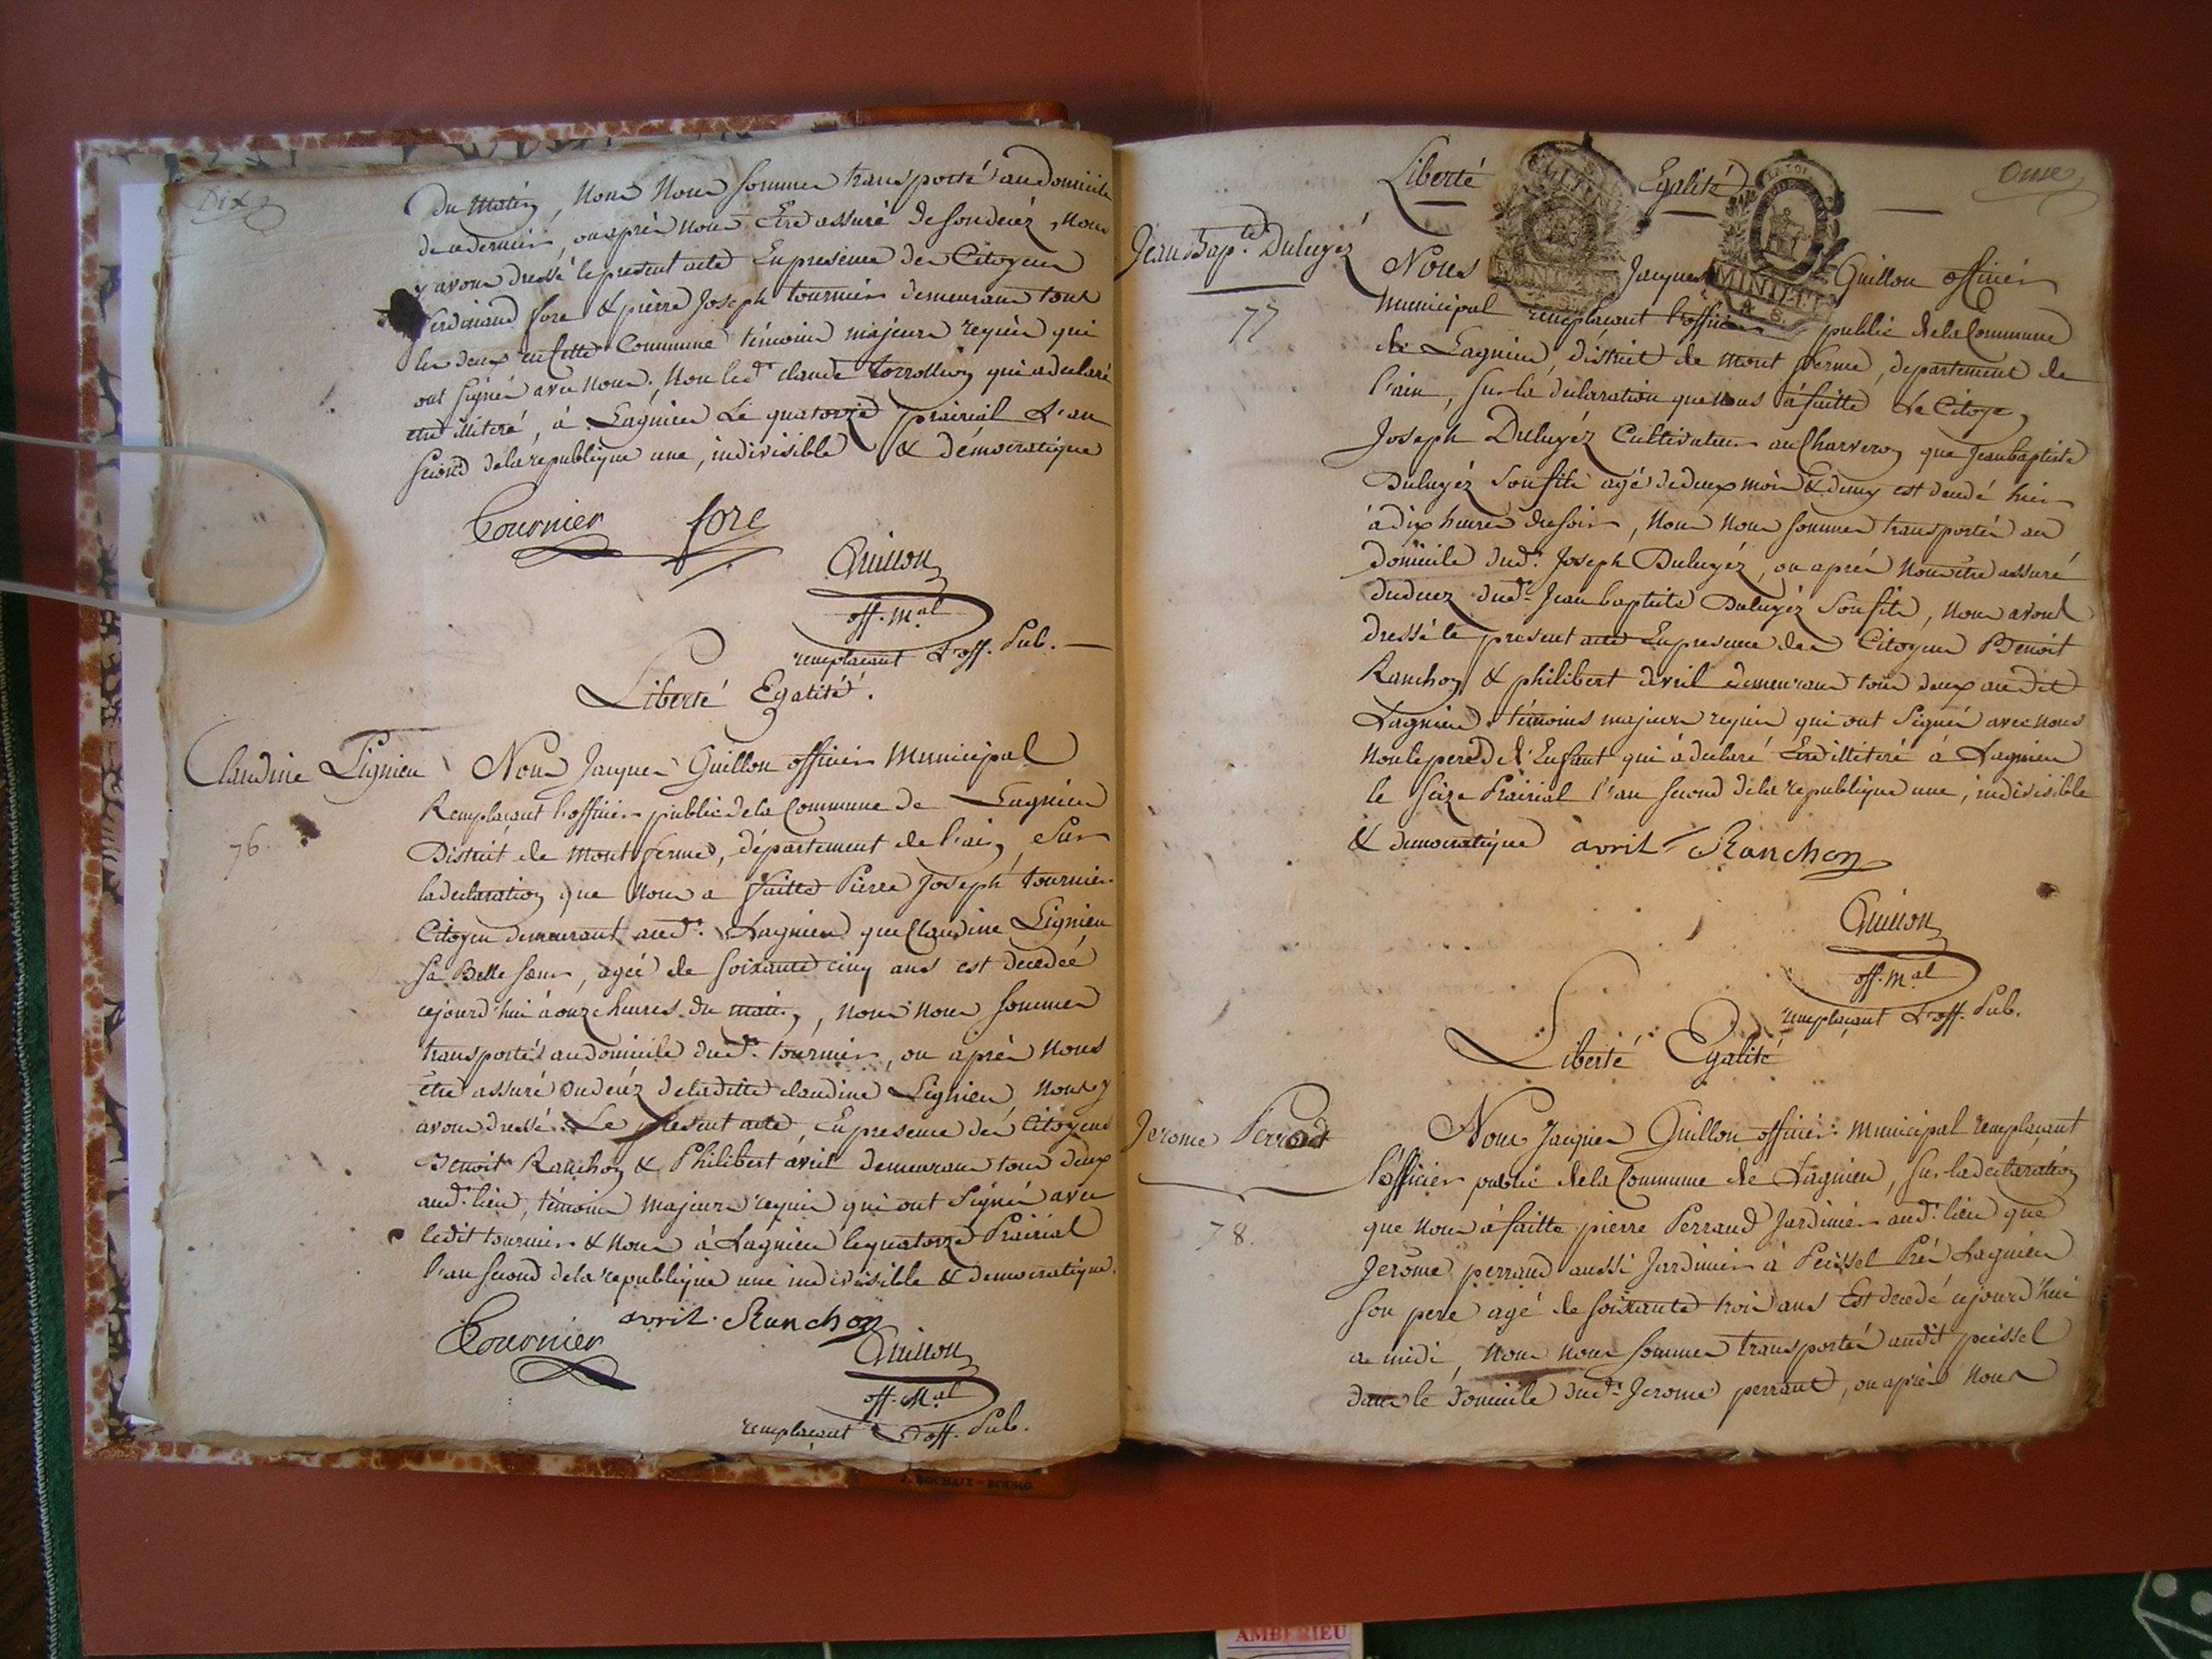 Dix
du matin, Nous Nous sommes transporté au domicile
de ce dernier, ou après nous Etre assuré de son decéz, nous
y avons dressé le present acte En presence des Citoyens
ferdinand fore & pierre Joseph tournier demeurans tout
les deux en cette Commune témoins majeurs requis qui
ont signés avec nous. Non led.t claude qui a declaré
etre illiteré, à Lagnieu Le quatorze prairial L'an
second de la republique une, indivisible & démocratique
Tournier fore
Guillon
off. M.al
remplacant L'off. Pub.
Liberté Egalité.
Claudine Lignieu
76.
Nous Jacques Guillon officier Municipal
Remplacant l'officier public de la Commune de Lagnieu
District de Mont ferme, département de l'ain, Sur
la declaration que Nous a faitte Pierre Joseph tournier
Citoyen demeurant aud.t Lagnieu que Claudine Lignieu
sa Belle sœur, agée de soixante cinq ans est decedée
cejourd'hui à onze heures du matin, nous nous sommes
transportés au domicile dud.t tournier, ou après Nous
être assuré du decéz de laditte claudine Lignieu Nous y
avons dressé Le present acte, En presence dés Citoyens
Benoit Ranchon & Philibert avril demeurans tous deux
aud.t lieu, témoins majeurs requis qui ont Signés avec
ledit tournier & Nous à Lagnieu le quatorze Prairial
l'an second de la republique une indivisible & democratique.
avril. Ranchon
Tournier
Guillon
off. M.al
remplaçant L'off. Pub.
J. ROCHAIX - BOURG
Onse
Liberté Egalité
MINUTE
MINUTE
4 S.
Jean Bap.te Duluyéz
77
Nous Jacques Guillon officier
Municipal remplacant l'officier public de la Commune
de Lagnieu, district de mont ferme, departement de
l'ain, sur la declaration que nous à faitte Le Citoyen
Joseph Duluyéz Cultivateur au Charveron que Jean baptiste
Duluyéz son fils agé de deux mois & demy est decedé hier
à dix heures du soir, Nous Nous sommes transportés au
domicile dud.t Joseph Duluyéz, ou après Nous être assuré
du decez dud.t Jean baptiste Duluyéz son fils, nous avons
dressé le present acte En presence des Citoyens Benoit
Ranchon & philibert avril demeurans tous deux audit
Lagnieu témoins majeurs requis qui ont Signés avec nous
Non le pere de l'Enfant qui à declaré Etre illiteré à Lagnieu
le Seize Prairial l'an second de la republique une, indivisible
& democratique avril Ranchon
Guillon
off. M.al
remplaçant L'off. Pub.
Liberté Egalité
Jerome Perrod
78.
Nous Jacques Guillon officier Municipal remplaçant
l'officier public de la Commune de Lagnieu, sur la declaration
que Nous à faitte pierre Perrand Jardinier aud.t lieu que
Jerôme perrand aussi Jardinier à Peissel Prés Lagnieu
son pere agé de soixante trois ans Est decedé cejourd'hui
a midi, Nous nous sommes transportés audit peissel
dans le domicile dud.t Jerome perrand, ou après Nous
AMBERIEU